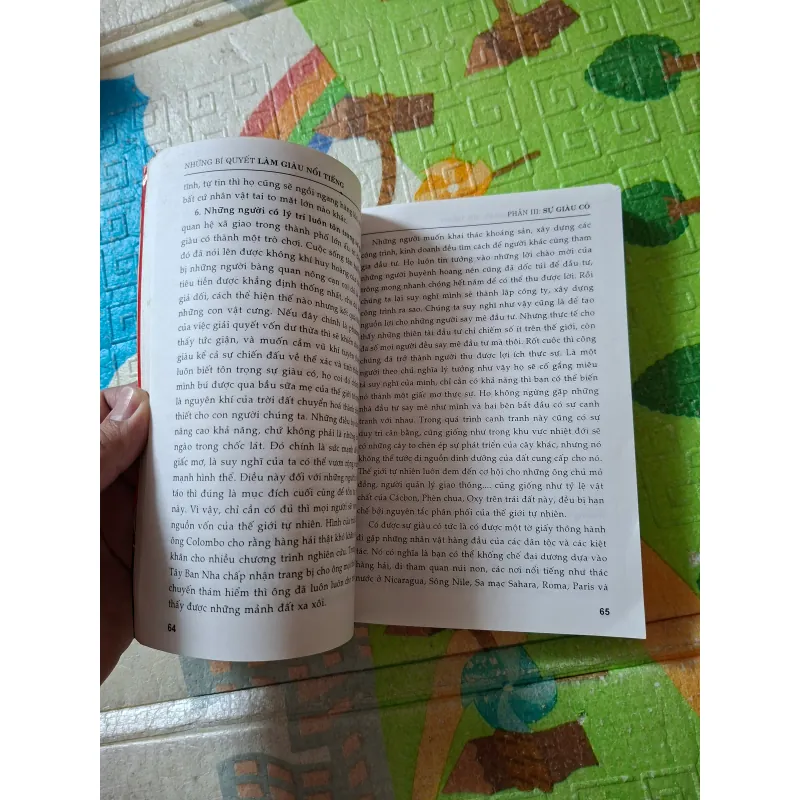 NHỮNG BÍ QUYẾT LÀM GIÀU NỔI TIẾNG
tĩnh, tự tin thì họ cũng sẽ ngồi ngang hàng
bất cứ nhân vật tai to mặt lớn nào khác.
6. Những người có lý trí luôn tôn
quan hệ xã giao trong thành phố lớn
giàu có thành một trò chơi. Cuộc sống
đó đã nói lên được không khí huy hoàng
bị những người bàng quan nông cạn coi
tiêu tiền được khẳng định thống nhất, cho
giả dối, cách thể hiện thế nào nhưng kết
những con vật cưng. Nếu đây chính là
của việc giải quyết vốn dư thừa thì sẽ khiến
thấy tức giận, và muốn cầm vũ khí
giàu kể cả sự chiến đấu về thể xác và tinh
luôn biết tôn trọng sự giàu có, họ coi đó
mình bú được qua bầu sữa mẹ của thế giới
là nguyên khí của trời đất chuyển hoá thành
thiết cho con người chúng ta. Những điều
nâng cao khả năng, chứ không phải là những
ngào trong chốc lát. Đó chính là sức mạnh
giấc mơ, là suy nghĩ của ta có thể vươn rộng
mạnh hình thể. Điều này đối với những người
táo thì đúng là mục đích cuối cùng để tồn
này. Vì vậy, chỉ cần có đủ thì mọi người sẽ
nguồn vốn của thế giới tự nhiên. Hình
ông Colombo cho rằng hàng hải thật khó
khăn cho nhiều chương trình nghiên cứu.
Tây Ban Nha chấp nhận trang bị cho ông
chuyến thám hiểm thì ông đã luôn luôn
thấy được những mảnh đất xa xôi.
64
PHẦN III: SỰ GIÀU CÓ
Những người muốn khai thác khoáng sản, xây dựng các
công trình, kinh doanh đều tìm cách để người khác cùng tham
gia đầu tư. Họ luôn tin tưởng vào những lời chào mời của
những người huyênh hoang nên cũng đã dốc túi để đầu tư,
mong nhanh chóng hết năm để có thể thu được lời. Rồi
chúng ta lại suy nghĩ mình sẽ thành lập công ty, xây dựng
công trình ra sao. Chúng ta suy nghĩ như vậy cũng là để tạo
nguồn lợi cho những người say mê đầu tư. Nhưng thực tế cho
thấy những thiên tài đầu tư chỉ chiếm số ít trên thế giới, còn
đa số mọi người đều say mê đầu tư mà thôi. Rốt cuộc thì công
chúng đã trở thành người thu được lợi ích thực sự. Là một
người theo chủ nghĩa lý tưởng như vậy họ sẽ cố gắng miêu
tả suy nghĩ của mình, chỉ cần có khả năng thì bạn có thể biến
thành một giấc mơ thực sự. Họ không ngừng gặp những
nhà đầu tư say mê như mình và hai bên bắt đầu có sự canh
tranh với nhau. Trong quá trình canh tranh này cũng có sự
duy trì cân bằng, cũng giống như trong khu vực nhiệt đới sẽ
có những cây to chèn ép sự phát triển của cây khác, nhưng nó
không thể tước đi nguồn dinh dưỡng của đất cung cấp cho nó.
Thế giới tự nhiên luôn đem đến cơ hội cho những ông chủ mỏ
vàng, người quản lý giao thông.... cũng giống như tỷ lệ vật
chất của Cácbon, Phèn chua, Oxy trên trái đất này, đều bị hạn
chế bởi nguyên tắc phân phối của thế giới tự nhiên.
Có được sự giàu có tức là có được một tờ giấy thông hành
đi gặp những nhân vật hàng đầu của các dân tộc và các kiệt
tác khác. Nó có nghĩa là bạn có thể khống chế đại dương dựa vào
hàng hải, đi tham quan núi non, các nơi nổi tiếng như thác
nước ở Nicaragua, Sông Nile, Sa mạc Sahara, Roma, Paris và
65